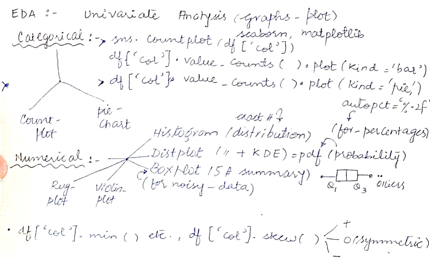 EDA :- Univariate Analysis (graphs - plot)
seaborn, matplotlib
Categorical :- → sns. countplot (df ['col'])
df ['col']. value_counts ( ). plot (kind = 'bar')
→ df ['col']. value_counts ( ). plot (kind = 'pie',
autopct = '%.2f'
Count-plot
pie-chart
(for-percentages)
exact #?
Histogram (distribution)
Numerical :- Distplot (" + KDE) = pdf (probability)
Boxplot (5 # summary)
(for noisy-data)
Q1 Q3
Rug-plot
Violin-plot
• df ['col']. min ( ) etc., df ['col']. skew ( ) + 0 (symmetric) -